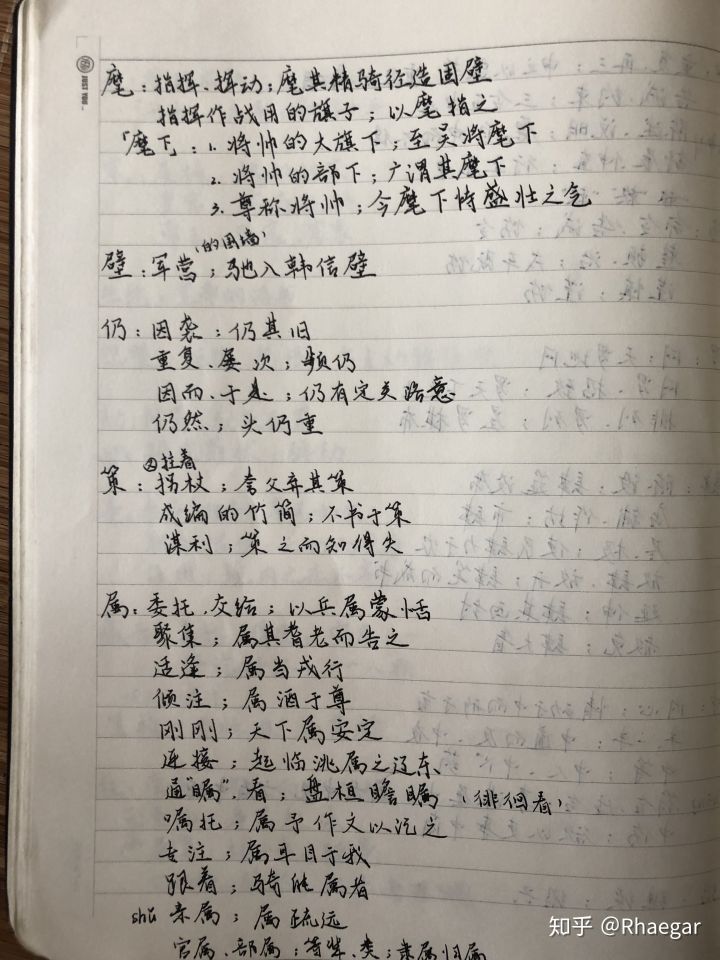 麾：指挥、挥动；麾其精骑径造围壁
指挥作战用的旗子；以麾指之
「麾下：1.将帅的大旗下；至吴将麾下
2.将帅的部下；广谓其麾下
3.尊称将帅；今麾下恃盛壮之气
(的围墙)
壁：军营；驰入韩信壁
仍：因袖：仍其旧
重复、屡次；频仍
因而、于是；仍有定交
仍然；头仍重
②拄着
策：拐杖；夸父弃其策
成编的竹简；不书于策
谋利；策之而知得失
属：委托、交给；以兵属蒙恬
聚集；属其耆老而告之
适逢；属当戎行
倾注；属酒于尊
刚刚；天下属安定
连接；起临洮属之辽东
通"瞩"、看；盘桓瞻瞩（徘徊看）
嘱托；属予作文以记之
专注；属耳目于我
跟着；骑能属者
shǔ 亲属；属疏远
官属、部属；等辈、类；隶属归属
知乎 @Rhaegar